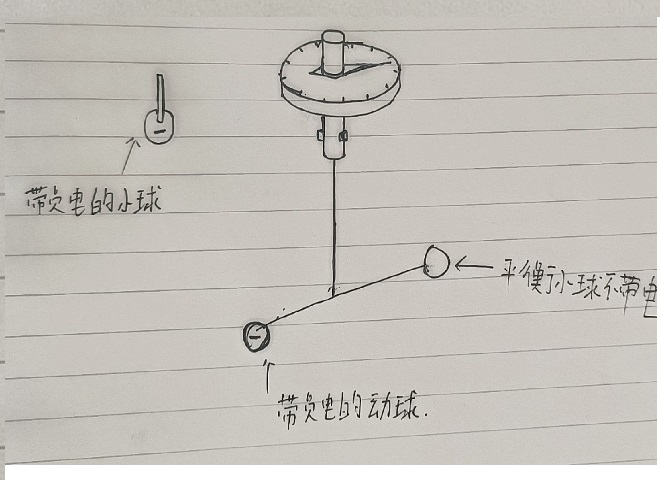 带负电的小球
平衡小球不带电
带负电的动球.